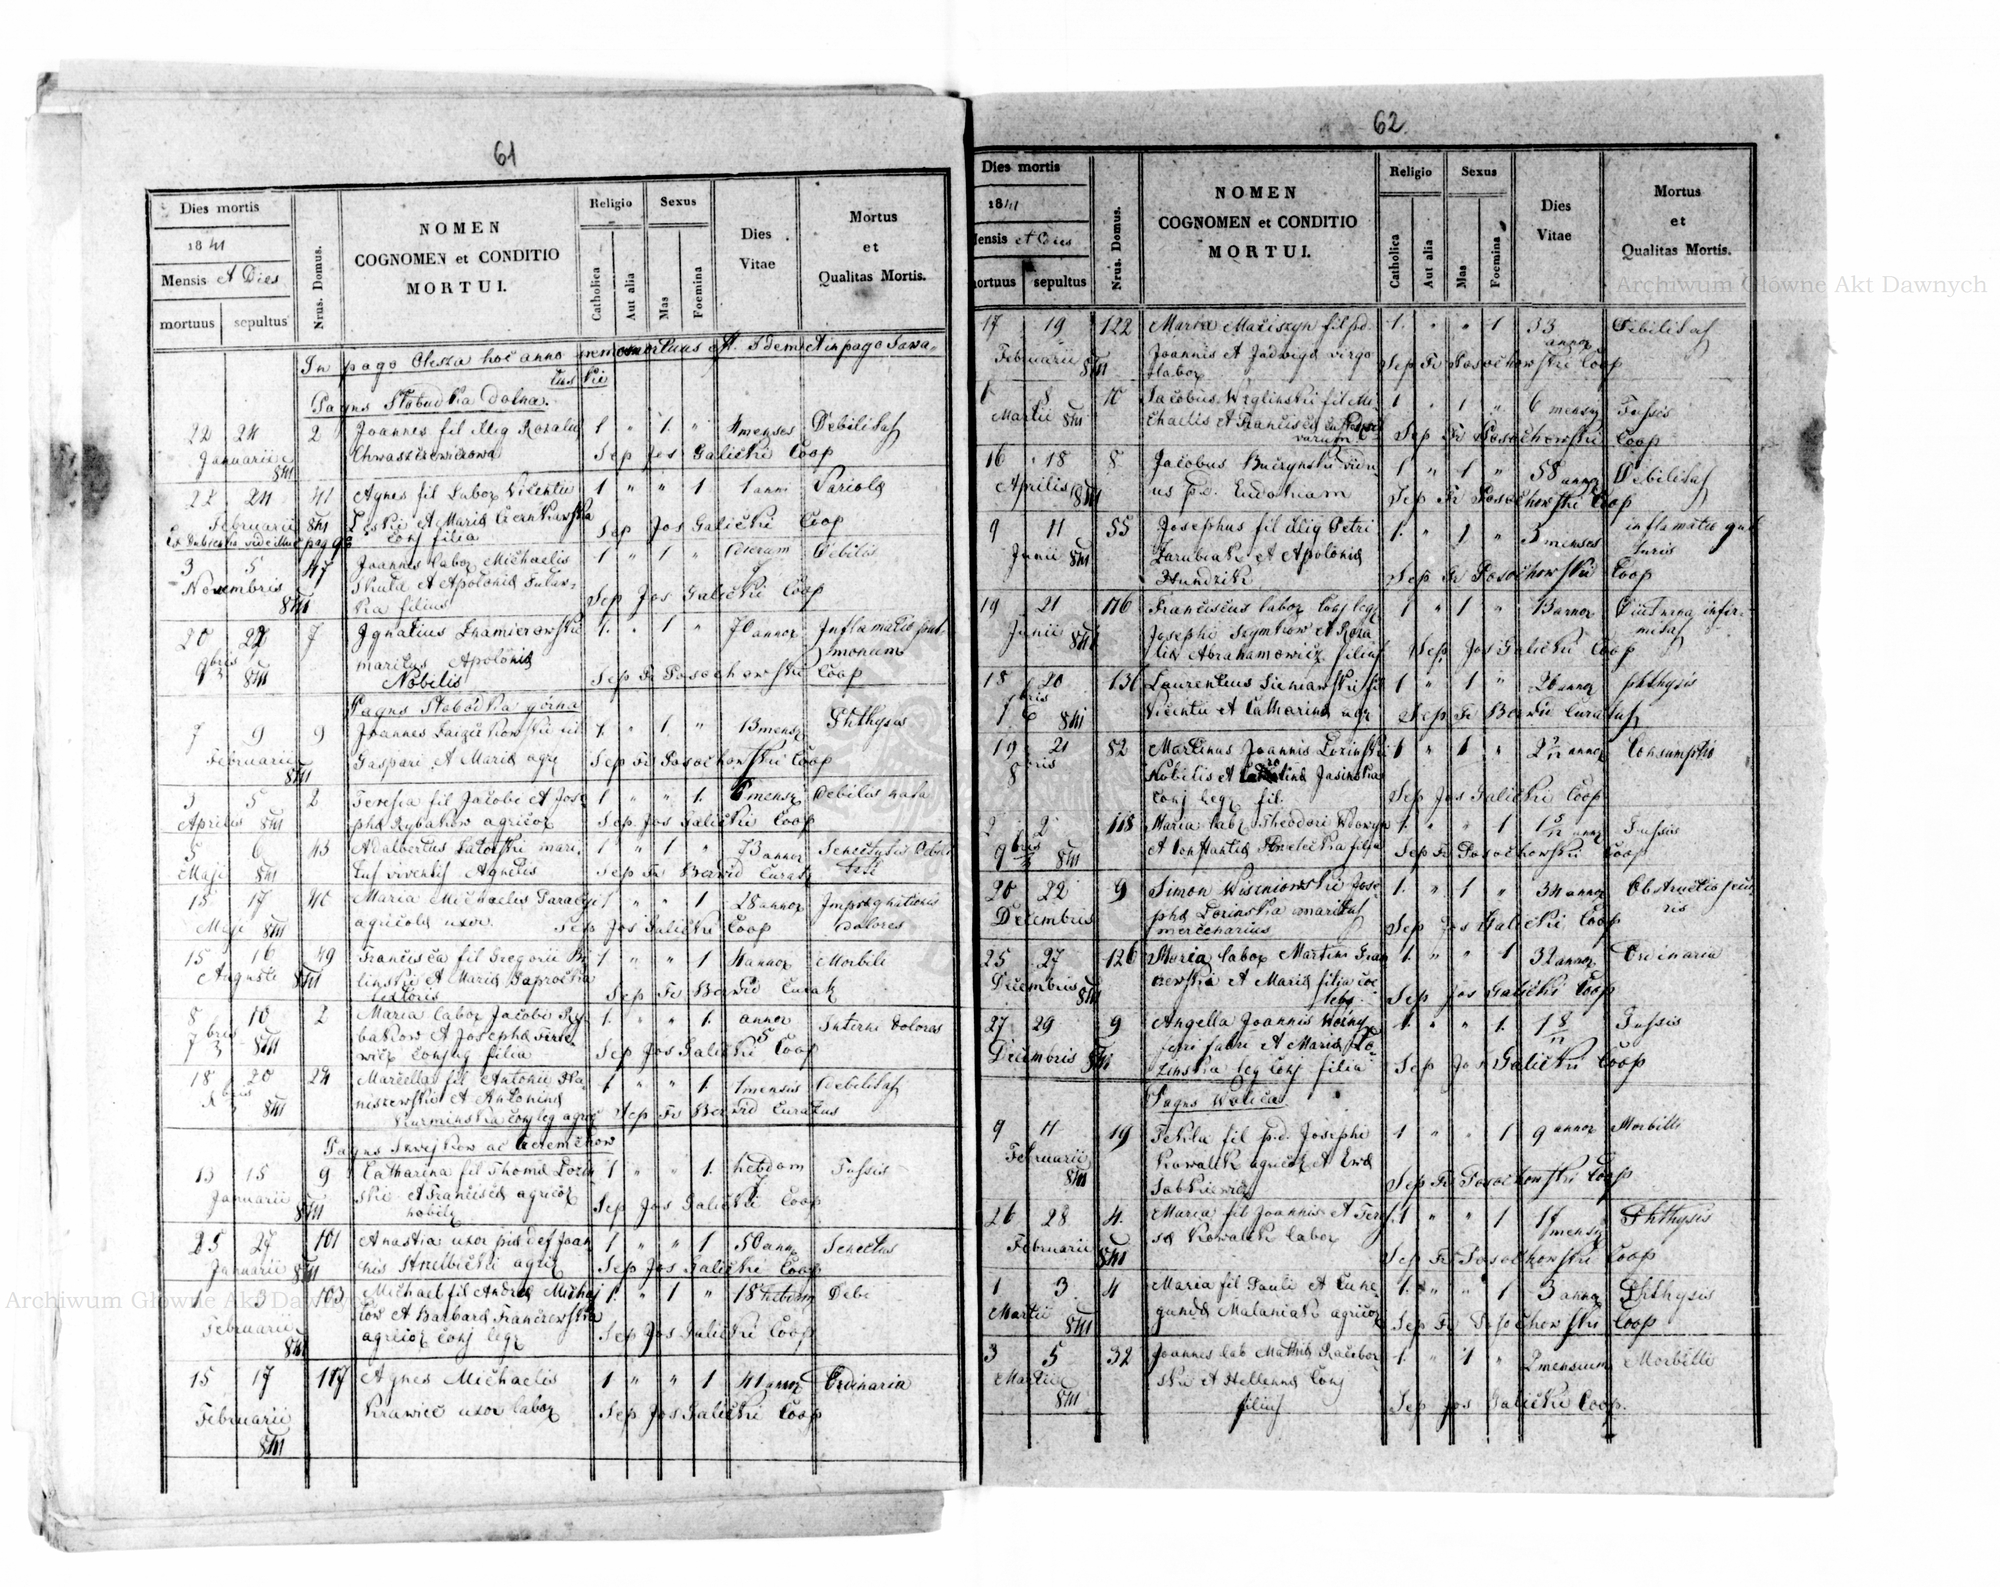 61
Dies mortis
1841
Mensis et Dies
mortuus
sepultus
Nrus. Domus.
NOMEN
COGNOMEN et CONDITIO
MORTUI.
Religio
Catholica
Aut alia
Sexus
Mas
Foemina
Dies
Vitae
Mortus
et
Qualitas Mortis.
In pago Olesza hoc anno nemo mortuus est. Idem et in pago
Pagus Slobudka dolna.
22 24 2 Joannes fil illig Rosaliae 1 " 1 " 4 menses Debilitas
Januarii 841 Sep Jos Galicki Coop
22 24 41 Agnes fil labor Vicentii 1 " " 1 1 anni Variola
Februarii 841 et Maria
conj filia Sep Jos Galicki Coop
3 5 47 Joannes labor Michaelis 1 " 1 " dierum Debilis
Novembris 841 et Apolonia
filius Sep Jos Galicki Coop
20 22 7 Ignatius 1. " 1 " 70 annor Inflamatio pul-
9bris 841 maritus Apolonia monum
Nobilis Sep Fr Posochowski Coop
Pagus Slobodka górna
7 9 9 Joannes fil 1. " 1 " 13 mens Phthysis
Februarii 841 Gaspari et Maria agr Sep Fr Posochowski Coop
3 5 2 Teresia fil Jacobi et Jose 1 " " 1. 6 mens Debilis nata
Aprilis 841 pha Rybakow agricol Sep Jos Galicki Coop
5 6 43 Adalbertus mari- 1 " 1 " 73 annor
Maji 841 tus viventis Agnetis Sep Fr Curat
15 17 40 Maria Michaelis 1 " " 1 28 annor Impraegnationis
Maji 841 agricola uxor. Sep Jos Galicki Coop dolores
15 16 49 Francisca fil Gregorii Bi- 1 " " 1 4 annor Morbili
Augusti 841 linski et Maria
textoris Sep Fr Curat
8 10 2 Maria labor Jacobi Ry- 1. " " 1. annor 5 Interni dolores
7bris 841 bakow et Josepha
conjug filia Sep Jos Galicki Coop
18 20 24 Marcella fil Antonii 1. " " 1. 1 mensis Debilitas
841 et Antonina
conj leg agric Sep Fr Curatus
13 15 9 Catharina fil Thoma 1 " " 1. hebdom 7 Tussis
Januarii 841 ski et Francisca agricol
nobilis Sep Jos Galicki Coop
25 27 101 Anastia uxor piae def Joan 1 " " 1 50 ann Senectus
Januarii 841 nis agric Sep Jos Galicki Coop
1 3 103 Michael fil Andrea 1. " 1 " 18 hebdom Debi
Februarii 841 et Barbara
agricol conj leg Sep Jos Galicki Coop
15 17 117 Agnes Michaelis 1 " " 1 41 annor Ordinaria
Februarii 841 Krawiec uxor labor Sep Jos Galicki Coop
62.
Dies mortis
1841
Mensis et Dies
mortuus
sepultus
Nrus. Domus.
NOMEN
COGNOMEN et CONDITIO
MORTUI.
Religio
Catholica
Aut alia
Sexus
Mas
Foemina
Dies
Vitae
Mortus
et
Qualitas Mortis.
17 19 122 Maria Maciszyn fil pd. 1. " " 1 33 annor Debilitas
Februarii 841 Joannis et Jadwiga virgo
labor Sep Fr Posochowski Coop
8 10 Jacobus Węglinski fil Mi 1 " 1 " 6 mens Tussis
Martii 841 chaelis et Francisca Sep Fr Posochowski Coop
16 18 8. Jacobus Buczynski vidu 1 " 1 " 58 annor Debilitas
Aprilis 841 us p.d. Sep Fr Posochowski Coop
9 11 55 Josephus fil illig Petri 1. " 1 " 3 menses inflamatio gut
Junii 841 Zarubiak et Apolonia turis
Hundzik Sep Fr Posochowski Coop
19 21 116 Franciscus labor conj leg 1 " 1 " 13 annor Diuturna infir-
Junii 841 Josephi Szymkow et Rosa mitas
lia Abrahamowicz filius Sep Jos Galicki Coop
18 20 131 Laurentius fil 1 " 1 " 26 annor phthysis
7bris 841 Vicentii et Catharina agr Sep Fr Curatus
19 21 52 Martinus Joannis Lozinski 1 " 1 " 2 7/12 annor Consumptio
8bris Nobilis et Jasinska
conj leg fil. Sep Jos Galicki Coop
2 2 118 Maria lab Theodori 1. " " 1 1 5/12 ann Tussis
9bris 841 et Constantia filia Sep Fr Posochowski Coop
20 22 9 Simon Wiszniowski Jose- 1. " 1 " 34 annor Obstructio
Decembris pha Lozinska maritus
mercenarius Sep Jos Galicki Coop
25 27 126 Maria labor Martini 1. " " 1 32 annor Ordinaria
Decembris 841 et Maria filia coe
lebs. Sep Jos Galicki Coop
27 29 9 Angella Joannis Worny 1. " " 1. 1 8/12 Tussis
Decembris 841 feri fabri et Maria Lo-
zinska leg conj filia Sep Jos Galicki Coop
Pagus Wolica
9 11 19 Tekla fil p.d. Josephi 1 " " 1 9 annor Morbilli
Februarii 841 Kowalik agricol et Eva
Sabkiewicz Sep Fr Posochowski Coop
26 28 4. Maria fil Joannis et Tere .1 " " 1 mens Phthysis
Februarii 841 sa Kowalik labor Sep Fr Posochowski Coop
1 3 4 Maria fil Pauli et Cune- 1. " " 1 3 annor Phthysis
Martii 841 gunda Malaniak agricol Sep Fr Posochowski Coop
3 5 32 Joannes lab Mathia Racibor 1. " 1 " 2 mensium Morbilli
Martii 841 ski et Hellena conj
filius Sep Jos Galicki Coop.
Archiwum Główne Akt Dawnych
Archiwum Główne Akt Dawnych